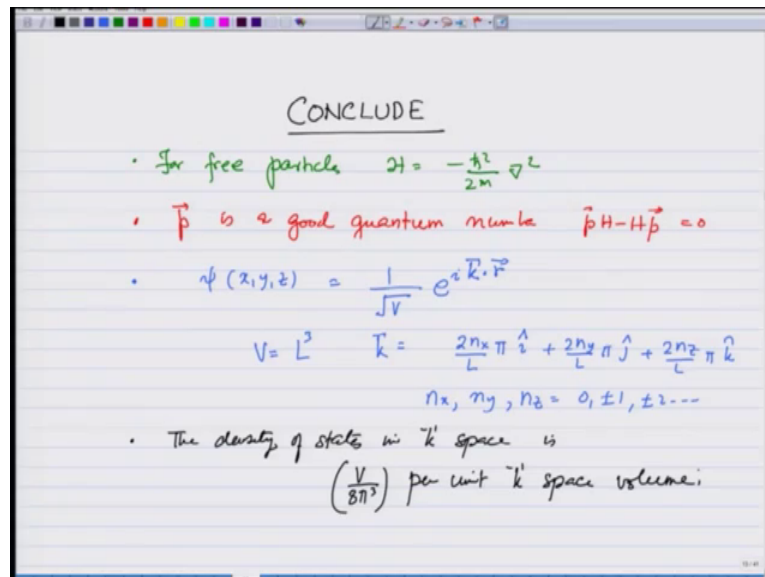 CONCLUDE
· For free particle H = -ħ²/2m ∇²
· p⃗ is a good quantum numbe p⃗H-Hp⃗ = 0
· ψ(x,y,z) = 1/√V e^{i k⃗·r⃗}
V = L³ k⃗ = 2nx/L π î + 2ny/L π ĵ + 2nz/L π k̂
nx, ny, nz = 0, ±1, ±2----
· The density of states in 'k' space is
(V/8π³) per unit 'k' space volume.